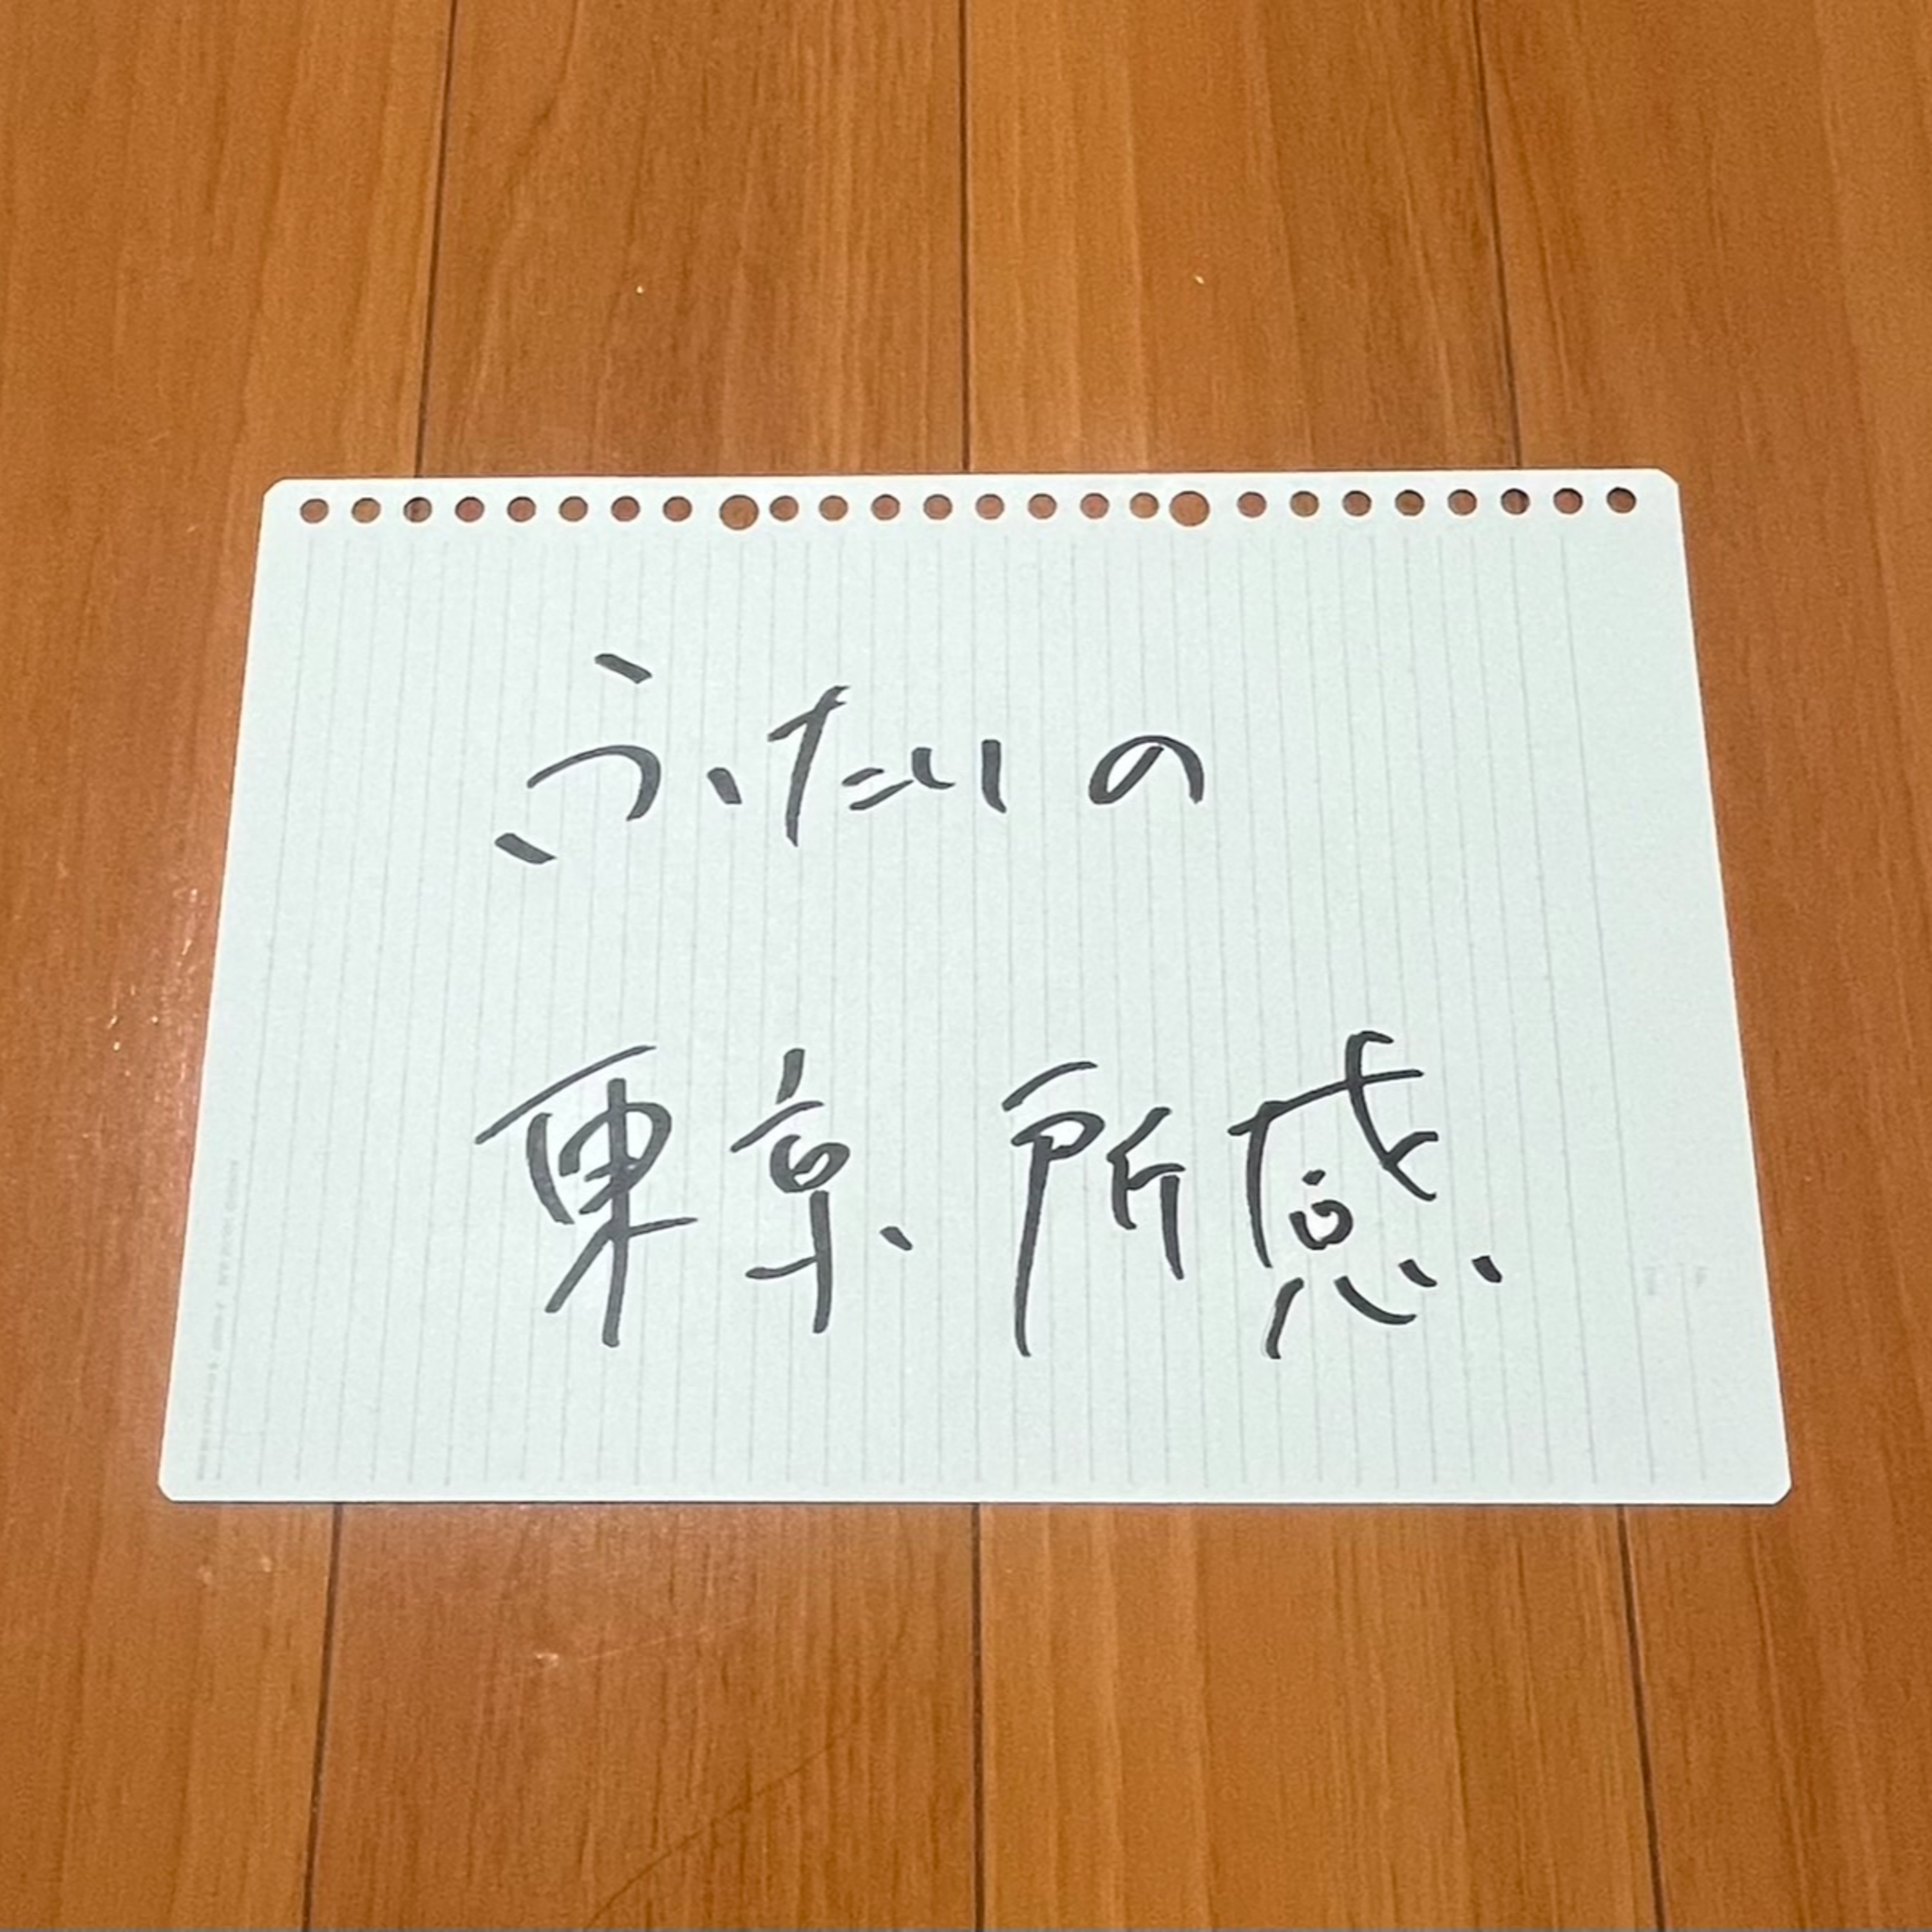 ふたりの
東京所感